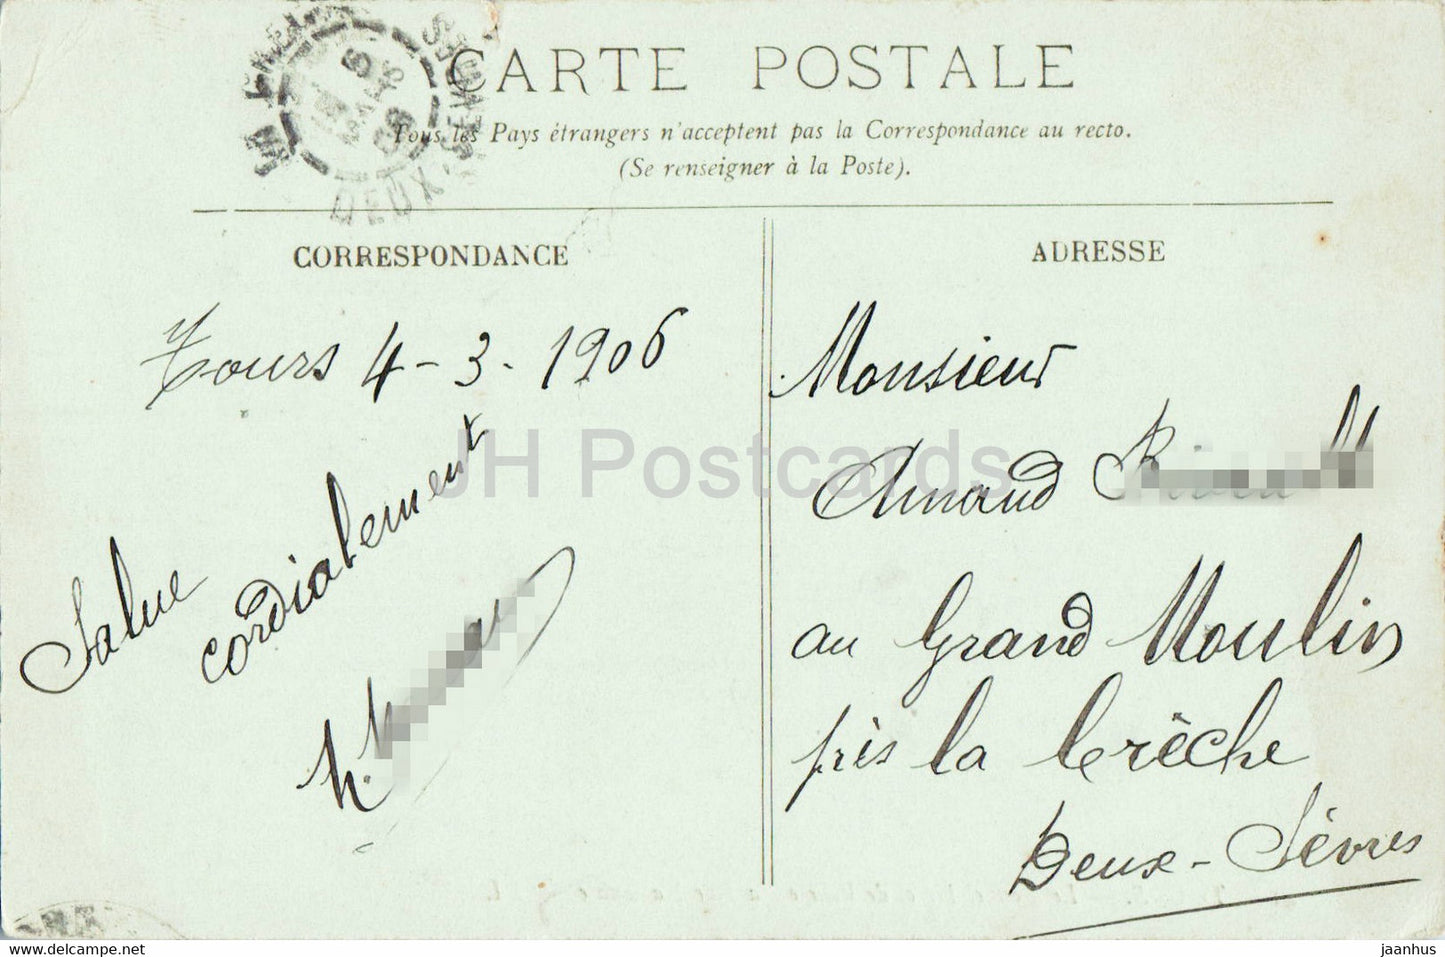 CARTE POSTALE
Tous les Pays étrangers n'acceptent pas la Correspondance au recto.
(Se renseigner à la Poste).
5
MARS
06
DEUX-SÈVRES
CORRESPONDANCE
Tours 4-3-1906
Salue
cordialement
ADRESSE
Monsieur
Amand
au Grand Moulin
près la Crèche
Deux-Sèvres
JH Postcards
hip.com
jaanhus